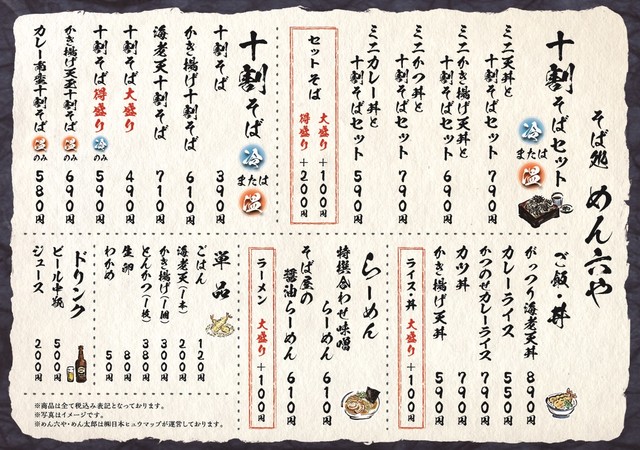 そば処 めん六や
十割そばセット
冷 または 温
ミニ天丼と十割そばセット 790円
ミニかき揚げ天丼と十割そばセット 690円
ミニかつ丼と十割そばセット 790円
ミニカレー丼と十割そばセット 590円
セットそば
大盛り +100円
得盛り +200円
十割そば
冷 または 温
十割そば 390円
かき揚げ十割そば 610円
海老天十割そば 710円
十割そば大盛り 490円
十割そば得盛り 冷のみ 590円
かき揚げ天玉十割そば 温のみ 690円
カレー南蛮十割そば 温のみ 580円
ご飯・丼
がっつり海老天丼 890円
カレーライス 550円
かつのせカレーライス 790円
カツ丼 790円
かき揚げ天丼 590円
ライス・丼 大盛り +100円
らーめん
特撰合わせ味噌らーめん 610円
そば屋の醤油らーめん 610円
ラーメン 大盛り +100円
単品
ごはん 120円
海老天(1本) 200円
かき揚げ(1個) 300円
とんかつ(1枚) 380円
生卵 80円
わかめ 50円
ドリンク
ビール中瓶 500円
ジュース 200円
※商品は全て税込み表記となっております。
※写真はイメージです。
※めん六や・めん太郎は㈱日本ヒュウマップが運営しております。